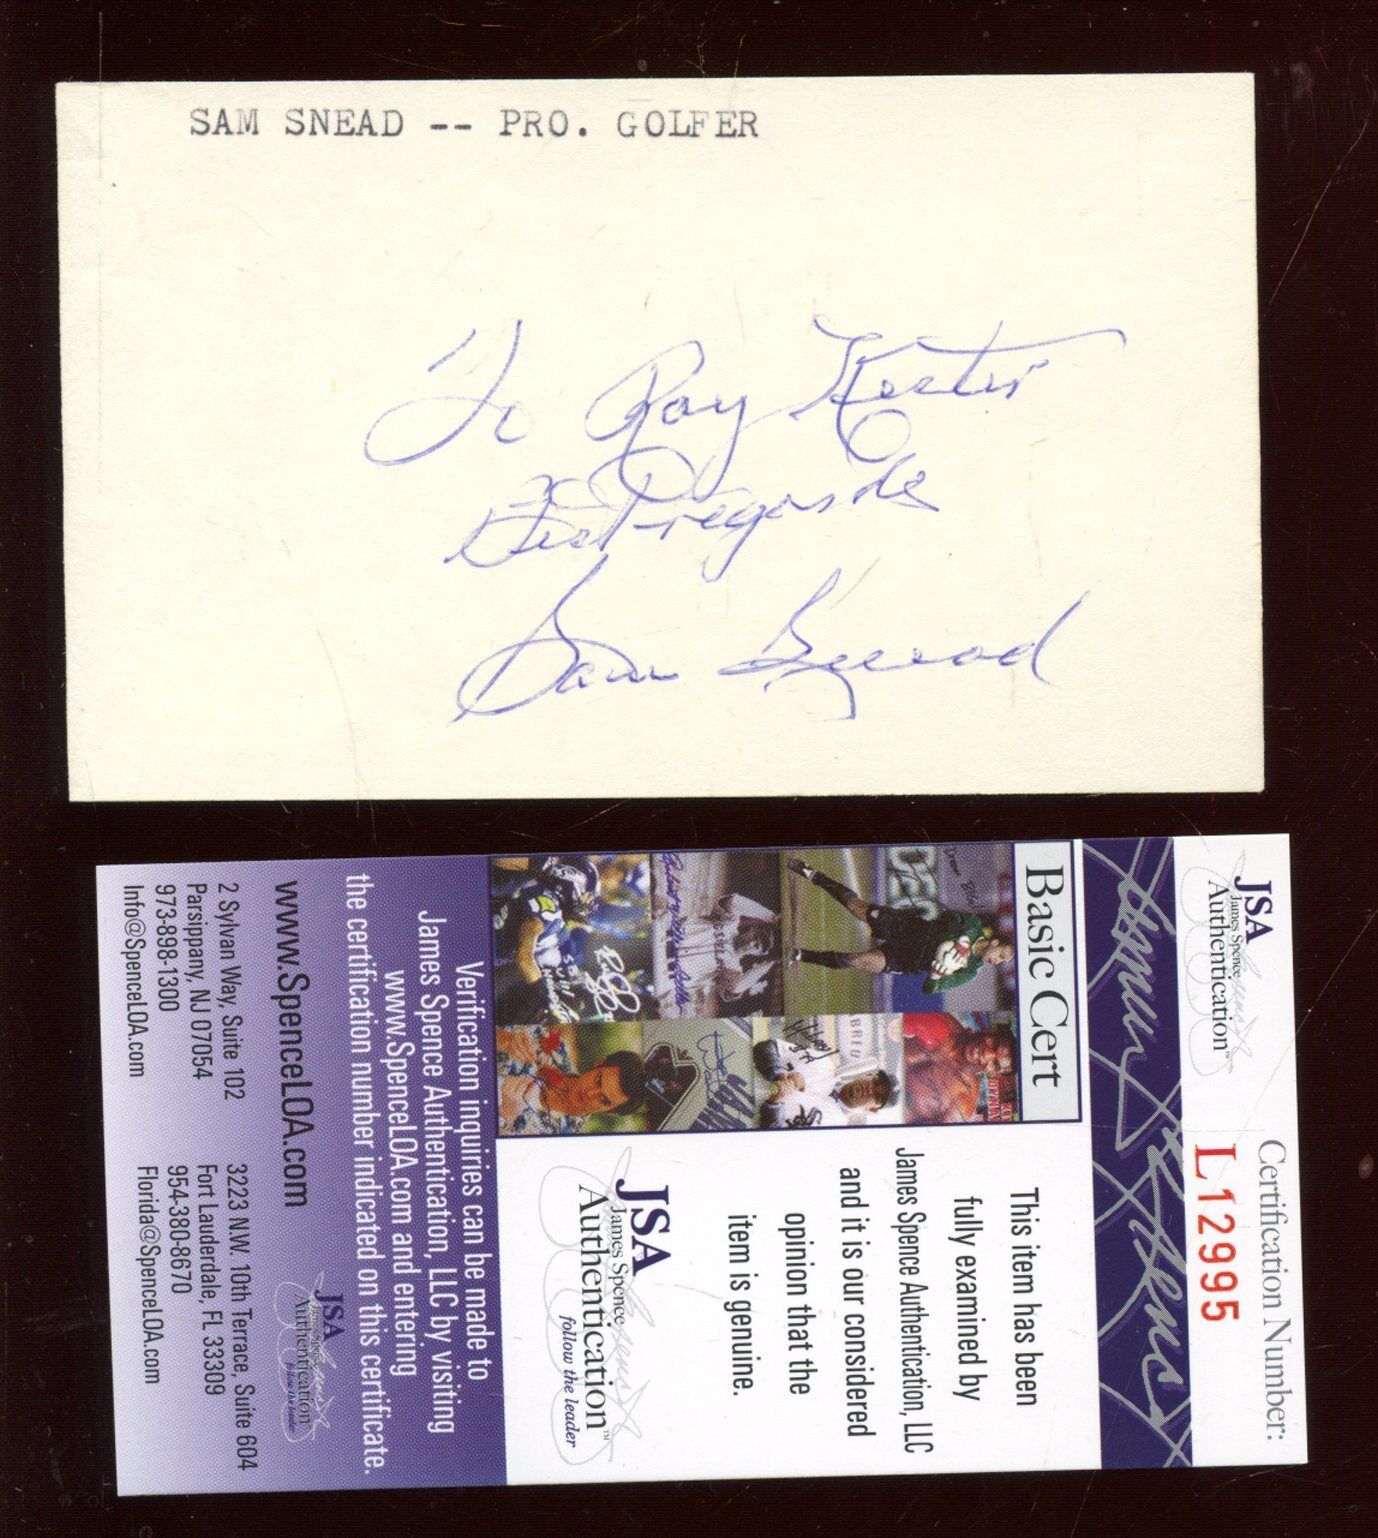 SAM SNEAD -- PRO. GOLFER
To Ray Kester
Best regards
Sam Snead
JSA
James Spence
Authentication™
Certification Number:
L12995
Basic Cert
This item has been
fully examined by
James Spence Authentication, LLC
and it is our considered
opinion that the
item is genuine.
JSA
James Spence
Authentication™
follow the leader
Verification inquiries can be made to
James Spence Authentication, LLC by visiting
www.SpenceLOA.com and entering
the certification number indicated on this certificate.
www.SpenceLOA.com
JSA
James Spence
Authentication
follow the leader
2 Sylvan Way, Suite 102
Parsippany, NJ 07054
973-898-1300
Info@SpenceLOA.com
3223 N.W. 10th Terrace, Suite 604
Fort Lauderdale, FL 33309
954-380-8670
Florida@SpenceLOA.com